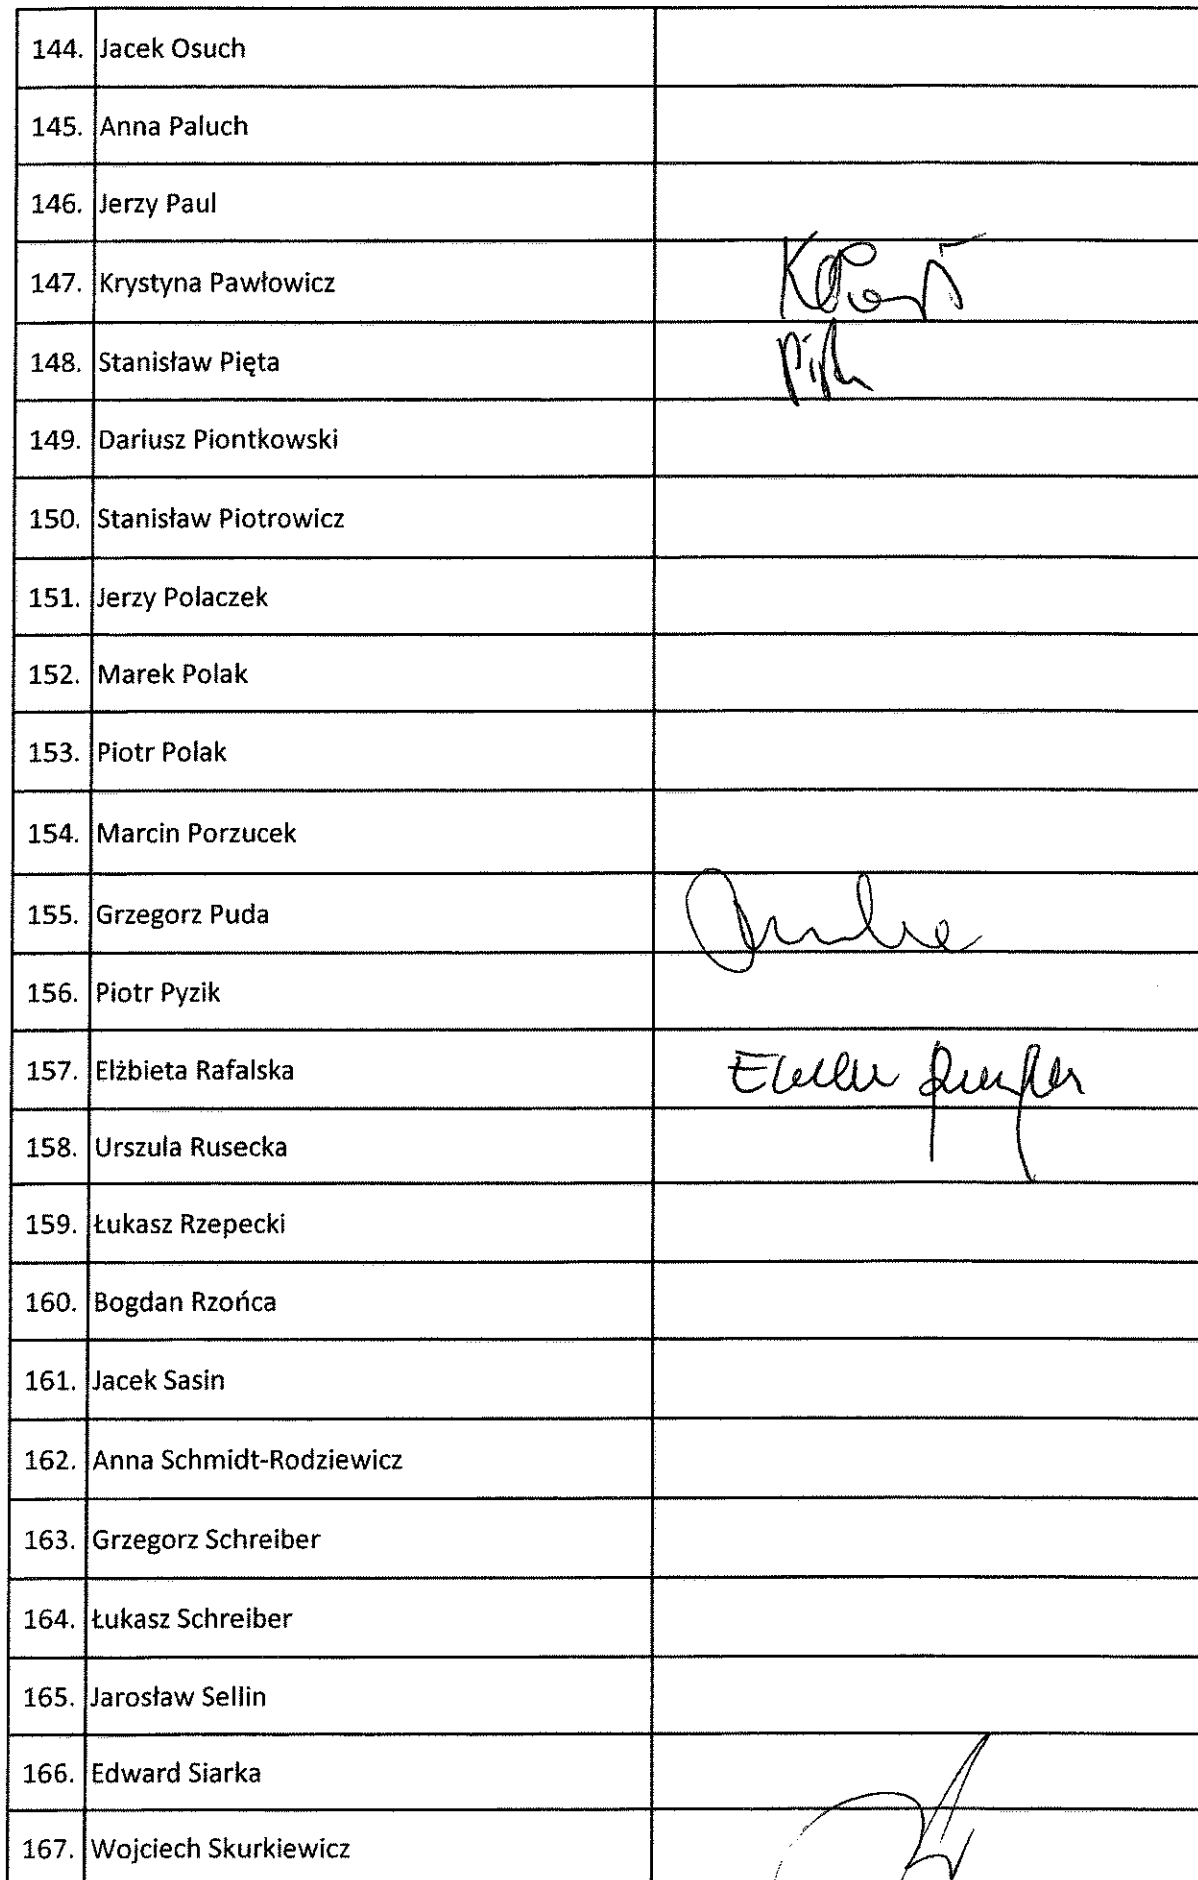 144. Jacek Osuch
145. Anna Paluch
146. Jerzy Paul
147. Krystyna Pawłowicz
148. Stanisław Pięta
149. Dariusz Piontkowski
150. Stanisław Piotrowicz
151. Jerzy Polaczek
152. Marek Polak
153. Piotr Polak
154. Marcin Porzucek
155. Grzegorz Puda
156. Piotr Pyzik
157. Elżbieta Rafalska
158. Urszula Rusecka
159. Łukasz Rzepecki
160. Bogdan Rzońca
161. Jacek Sasin
162. Anna Schmidt-Rodziewicz
163. Grzegorz Schreiber
164. Łukasz Schreiber
165. Jarosław Sellin
166. Edward Siarka
167. Wojciech Skurkiewicz